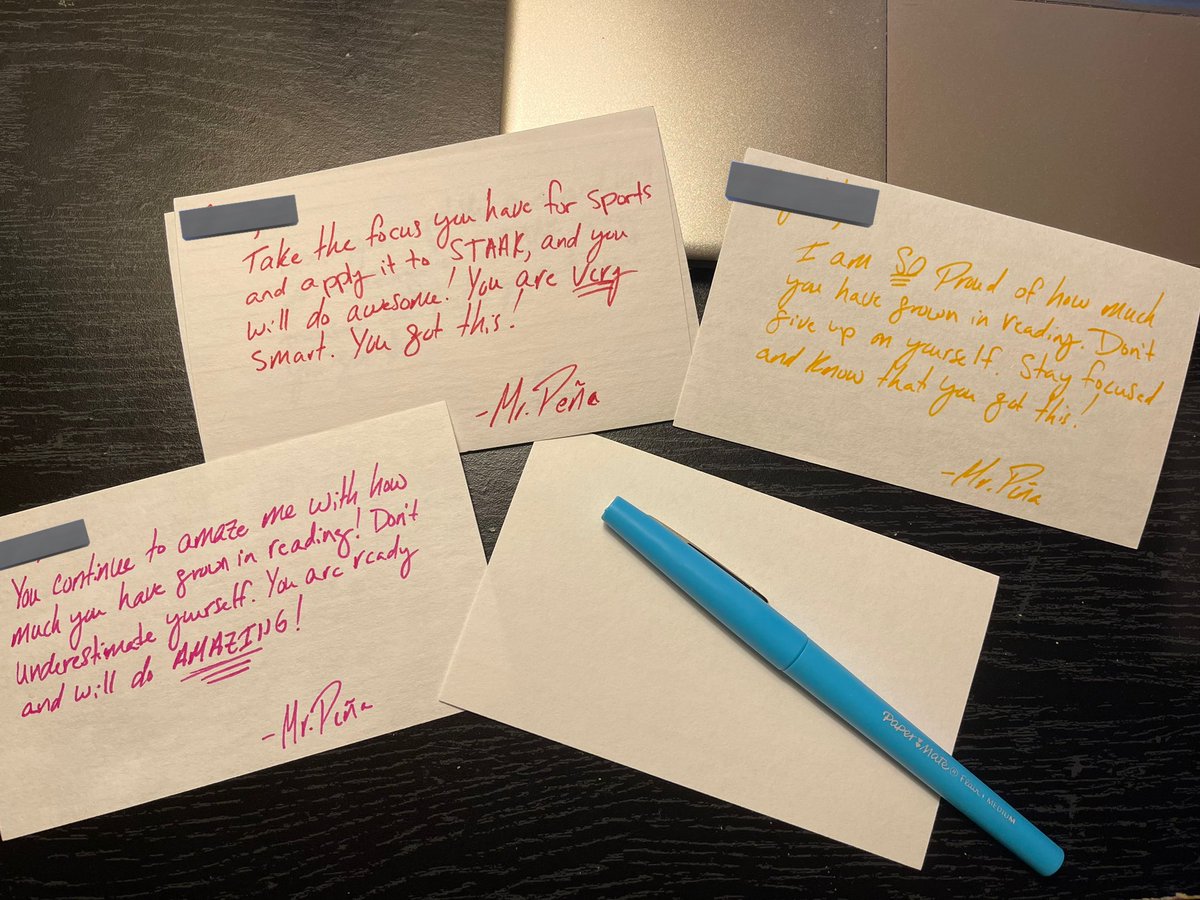 Take the focus you have for sports
and apply it to STAAR, and you
will do awesome! You are very
smart. You got this!
-Mr. Peña
I am SO Proud of how much
you have grown in reading. Don't
give up on yourself. Stay focused
and know that you got this!
-Mr. Peña
You continue to amaze me with how
much you have grown in reading! Don't
underestimate yourself. You are ready
and will do AMAZING!
-Mr. Peña
Paper Mate® Flair • MEDIUM